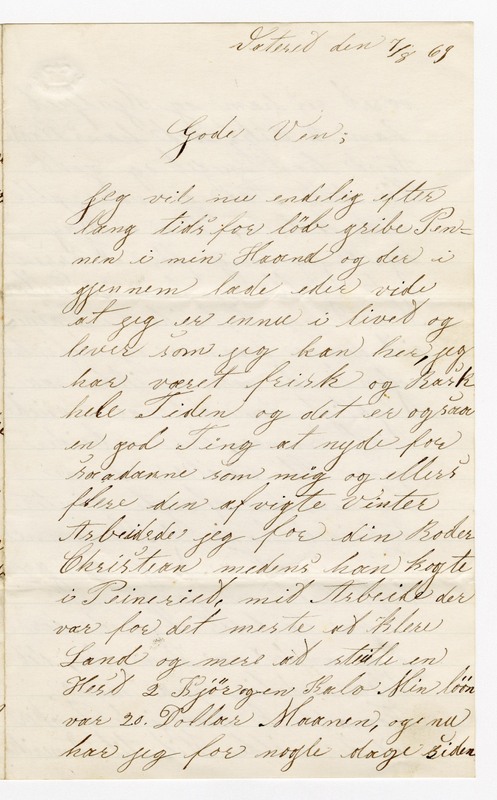 Satersd den 7/8 69
Gode Ven;
Jeg vil nu endelig efter
lang tids for löb gribe Pen=
nen i min Haand og der i
gjennem lade eder vide
at jeg er ennu i lived og
lever som jeg kan her, jeg
har været frisk og Rask
hele Tiden og det er ogsaa
en god Ting at nyde for
saadanne som mig og ellers
flere den afvigte Vinter
Arbeidede jeg for din Broder
Christian medens han kogte
i Peineried, mid Arbeide der
var for det meste ad klere
Land og mere ad stelle en
Hest 2 Kjör og en Kalv Min löön
var 20. Dollar Maanen, og nu
har jeg for nogle dage siden